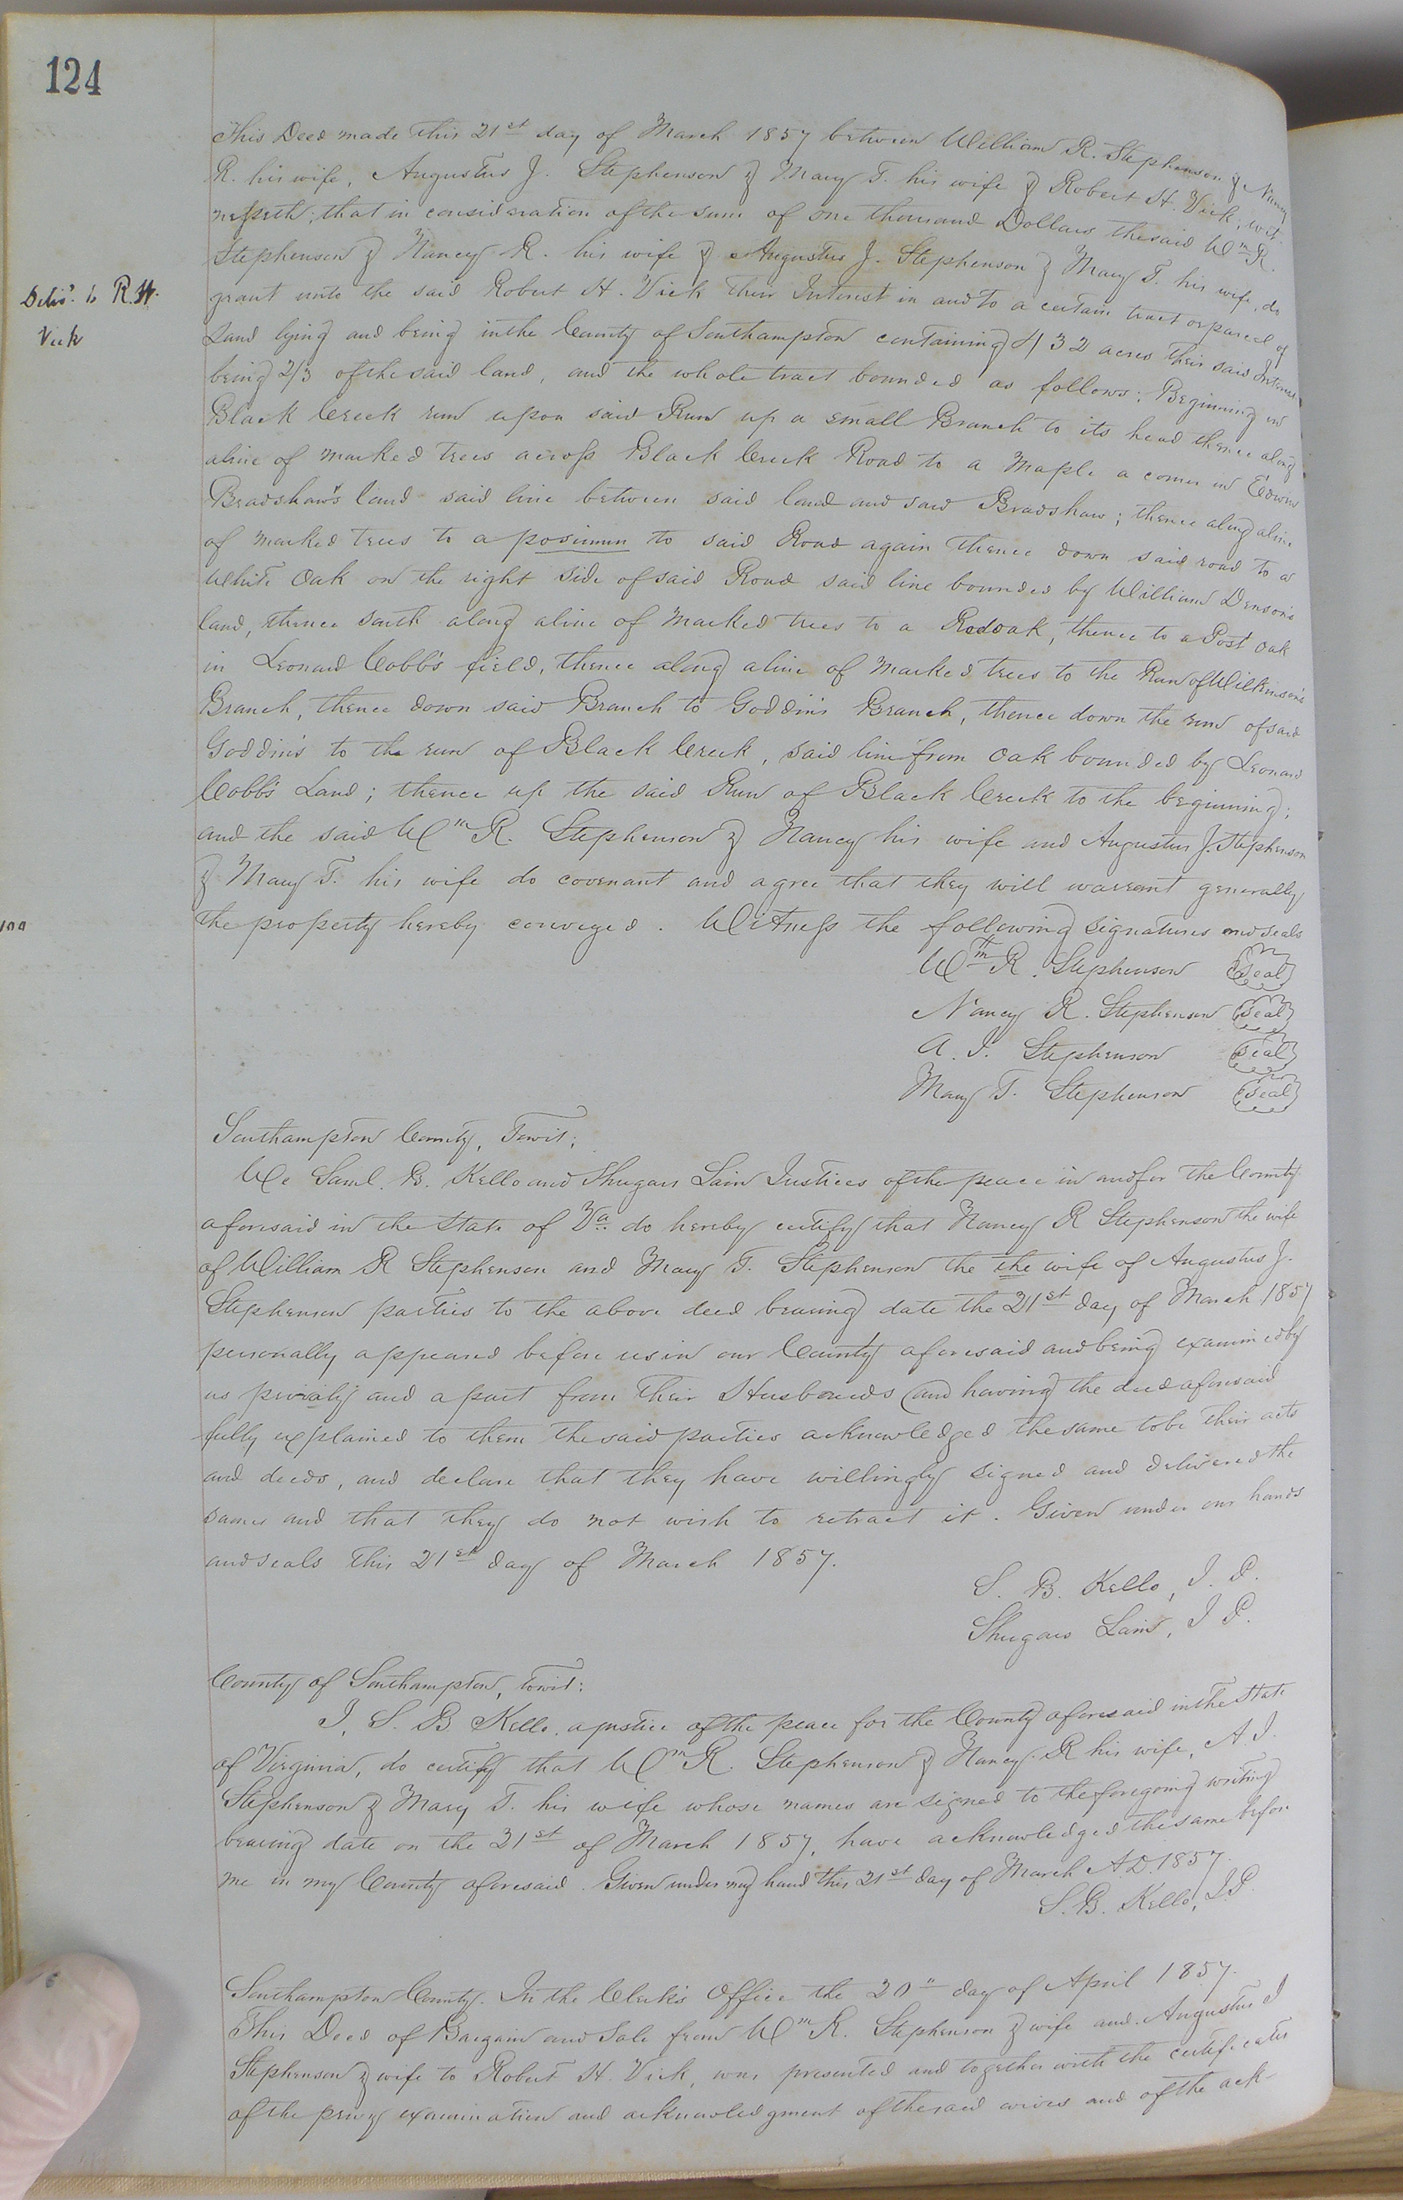 124
This Deed made this 21st day of March 1857 between William R. Stephenson & Nancy
R. his wife, Augustus J. Stephenson & Mary T. his wife & Robert H. Vick, wit-
nesseth; that in consideration of the sum of one thousand Dollars the said Wm R.
Stephenson & Nancy R. his wife & Augustus J. Stephenson & Mary T. his wife, do
grant unto the said Robert H. Vick their Interest in and to a certain tract or parcel of
Deliv'd. to R.H.
Vick
Land lying and being in the County of Southampton containing 432 acres their said Interest
being 2/3 of the said land, and the whole tract bounded as follows: Beginning in
Black Creek run upon said Run up a small Branch to its head thence along
a line of marked trees across Black Creek Road to a Maple a corner in Edwin
Bradshaw's land said line between said land and said Bradshaw; thence along a line
of marked trees to a posimun to said Road again thence down said road to a
White Oak on the right side of said Road said line bounded by William Denson's
land, thence south along a line of marked trees to a Red oak, thence to a Post oak
in Leonard Cobb's field, thence along a line of marked trees to the Run of Wilkinson's
Branch, thence down said Branch to Goddin's Branch, thence down the run of said
Goddin's to the run of Black Creek, said line from oak bounded by Leonard
Cobb's Land; thence up the said Run of Black Creek to the beginning;
and the said Wm R. Stephenson & Nancy his wife and Augustus J. Stephenson
& Mary T. his wife do covenant and agree that they will warrant generally
the property hereby conveyed. Witness the following signatures and seals
Wm R. Stephenson Seal
Nancy R. Stephenson Seal
A. J. Stephenson Seal
Mary T. Stephenson Seal
Southampton County, Towit;
We Saml. B. Kello and Shugars Lain Justices of the peace in and for the County
aforesaid in the State of Va. do hereby certify that Nancy R Stephenson the wife
of William R Stephenson and Mary T. Stephenson the the wife of Augustus J.
Stephenson parties to the above deed bearing date the 21st day of March 1857
personally appeared before us in our County aforesaid and being examined by
us privaly and apart from their Husbands and having the deed aforesaid
fully explained to them the said parties acknowledged the same to be their acts
and deeds, and declare that they have willingly signed and delivered the
same and that they do not wish to retract it. Given under our hands
and seals this 21st day of March 1857.
S. B. Kello, J. P.
Shugars Lain, J P.
County of Southampton, towit:
I, S. B Kello, a justice of the peace for the County aforesaid in the State
of Virginia, do certify that Wm R. Stephenson & Nancy R his wife, A J.
Stephenson & Mary T. his wife whose names are signed to the foregoing writing
bearing date on the 21st of March 1857, have acknowledged the same before
me in my County aforesaid. Given under my hand this 21st day of March A.D. 1857.
S. B. Kello, J.P.
Southampton County. In the Clerk's Office the 20" day of April 1857.
This Deed of Bargain and Sale from Wm R. Stephenson & wife and Augustus J
Stephenson & wife to Robert H. Vick, was presented and together with the certificates
of the privy examination and acknowledgment of the said wives and of the ack-